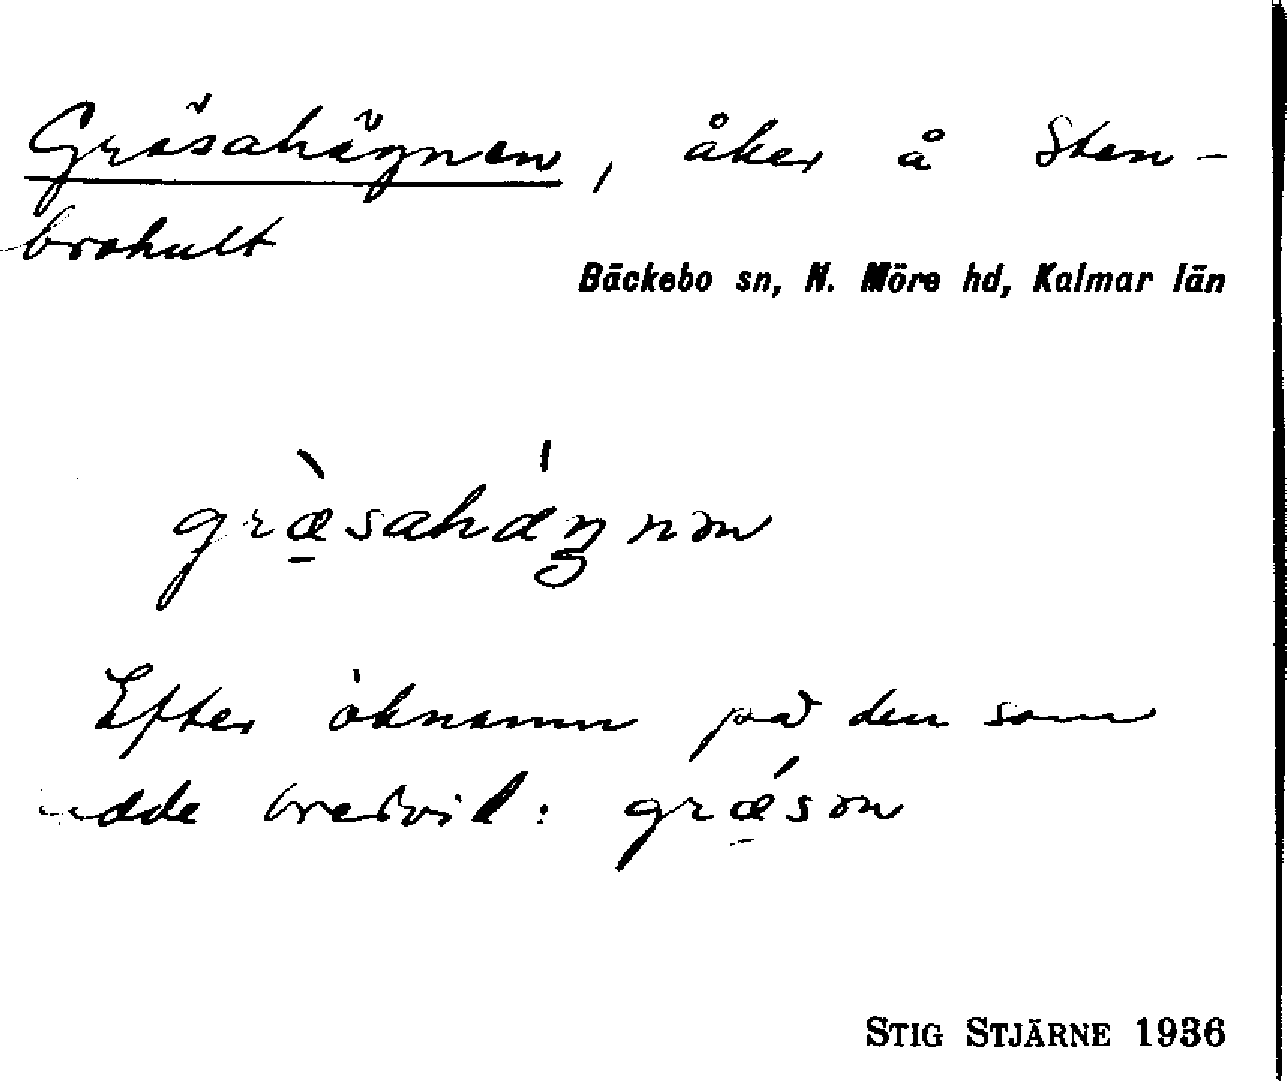 Gräsahägnen, åker å Sten-
brohult
Bäckebo sn, N. Möre hd, Kalmar län
græ̱̀sahá̈ŋnən
Efter öknamn på den som
rådde bredvid: grǽ̱sən
STIG STJÄRNE 1936